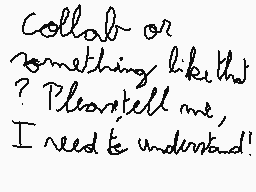 Collab or
something like that
? Please, tell me,
I need to understand!